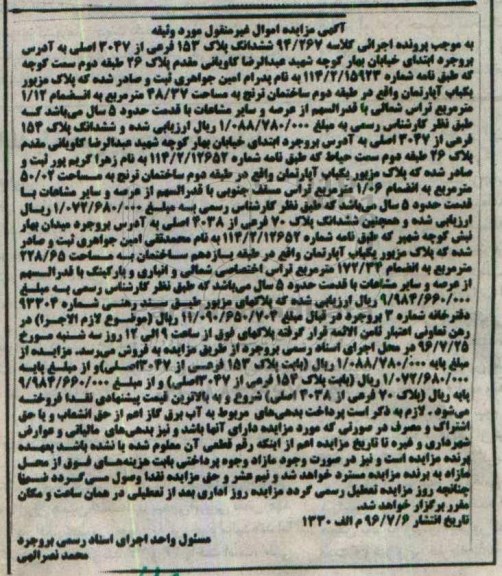 آگهی مزایده اموال غیرمنقول مورد وثیقه
به موجب پرونده اجرائی کلاسه ۹۴/۲۶۷ ششدانگ پلاک ۱۵۳ فرعی از ۳۰۴۷ اصلی به آدرس
بروجرد ابتدای خیابان بهار کوچه شهید عبدالرضا کاویانی مقدم پلاک ۲۶ طبقه دوم سمت کوچه
که طبق نامه شماره ۱۱۴/۲/۱۵۹۲۳ به نام پدرام امین جواهری ثبت و صادر شده که پلاک مزبور
یکباب آپارتمان واقع در طبقه دوم ساختمان ترنج به مساحت ۴۸/۳۷ مترمربع به انضمام ۱/۱۲
مترمربع تراس شمالی با قدرالسهم از عرصه و سایر مشاعات با قدمت حدود ۵ سال می‌باشد که
طبق نظر کارشناس رسمی به مبلغ ۱/۰۸۸/۷۸۰/۰۰۰ ریال ارزیابی شده و ششدانگ پلاک ۱۵۴
فرعی از ۳۰۴۷ اصلی به آدرس بروجرد ابتدای خیابان بهار کوچه شهید عبدالرضا کاویانی مقدم
پلاک ۲۶ طبقه دوم سمت حیاط که طبق نامه شماره ۱۱۴/۲/۱۲۶۵۲ به نام زهرا کریم پور ثبت و
صادر شده که پلاک مزبور یکباب آپارتمان واقع در طبقه دوم ساختمان ترنج به مساحت ۵۰/۰۲
مترمربع به انضمام ۱/۰۶ مترمربع تراس مسقف جنوبی با قدرالسهم از عرصه و سایر مشاعات با
قدمت حدود ۵ سال می‌باشد که طبق نظر کارشناس رسمی به مبلغ ۱/۰۷۲/۶۸۰/۰۰۰ ریال
ارزیابی شده و همچنین ششدانگ پلاک ۷۰ فرعی از ۴۰۳۸ اصلی به آدرس بروجرد میدان بهار
نبش کوچه شهپر که طبق نامه شماره ۱۱۴/۲/۱۲۶۵۲ به نام محمدتقی امین جواهری ثبت و صادر
شده که پلاک مزبور یکباب آپارتمان واقع در طبقه یازدهم ساختمان به مساحت ۲۲۸/۶۵
مترمربع به انضمام ۱۷۲/۳۳ مترمربع تراس اختصاصی شمالی و انباری و پارکینگ با قدرالسهم
از عرصه و سایر مشاعات با قدمت حدود ۵ سال می‌باشد که طبق نظر کارشناس رسمی به مبلغ
۹/۹۸۴/۶۶۰/۰۰۰ ریال ارزیابی شده که پلاکهای مزبور طبق سند رهنی شماره ۹۳۳۰۴
دفترخانه شماره ۳ بروجرد در قبال مبلغ ۱۱/۰۹۰/۶۵۰/۷۰۴ ریال (موضوع لازم الاجرا) در
رهن تعاونی اعتبار ثامن الائمه قرار گرفته پلاکهای فوق از ساعت ۹ الی ۱۲ روز سه شنبه مورخ
۹۶/۷/۲۵ در محل اجرای اسناد رسمی بروجرد از طریق مزایده به فروش می‌رسد. مزایده از
مبلغ پایه ۱/۰۸۸/۷۸۰/۰۰۰ ریال (بابت پلاک ۱۵۳ فرعی از ۳۰۴۷ اصلی) و از مبلغ پایه
۱/۰۷۲/۶۸۰/۰۰۰ ریال (بابت پلاک ۱۵۴ فرعی از ۳۰۴۷ اصلی) و از مبلغ ۹/۹۸۴/۶۶۰/۰۰۰
پایه ریال (پلاک ۷۰ فرعی از ۴۰۳۸ اصلی) شروع و به بالاترین قیمت پیشنهادی نقدا فروخته
می‌شود. لازم به ذکر است پرداخت بدهی‌های مربوط به آب برق گاز اعم از حق انشعاب و یا حق
اشتراک و مصرف در صورتی که مورد مزایده دارای آنها باشد و نیز بدهی‌های مالیاتی و عوارض
شهرداری و غیره تا تاریخ مزایده اعم از اینکه رقم قطعی آن معلوم شده یا نشده باشد بعهده
برنده مزایده است و نیز در صورت وجود مازاد وجوه پرداختی بابت هزینه‌های فوق از محل
مازاد به برنده مزایده مسترد خواهد شد و نیم عشر و حق مزایده نقدا وصول می‌گردد ضمنا
چنانچه روز مزایده تعطیل رسمی گردد مزایده روز اداری بعد از تعطیلی در همان ساعت و مکان
مقرر برگزار خواهد شد.
تاریخ انتشار ۹۶/۷/۶ م الف ۱۳۳۰
مسئول واحد اجرای اسناد رسمی بروجرد
محمد نصرالهی